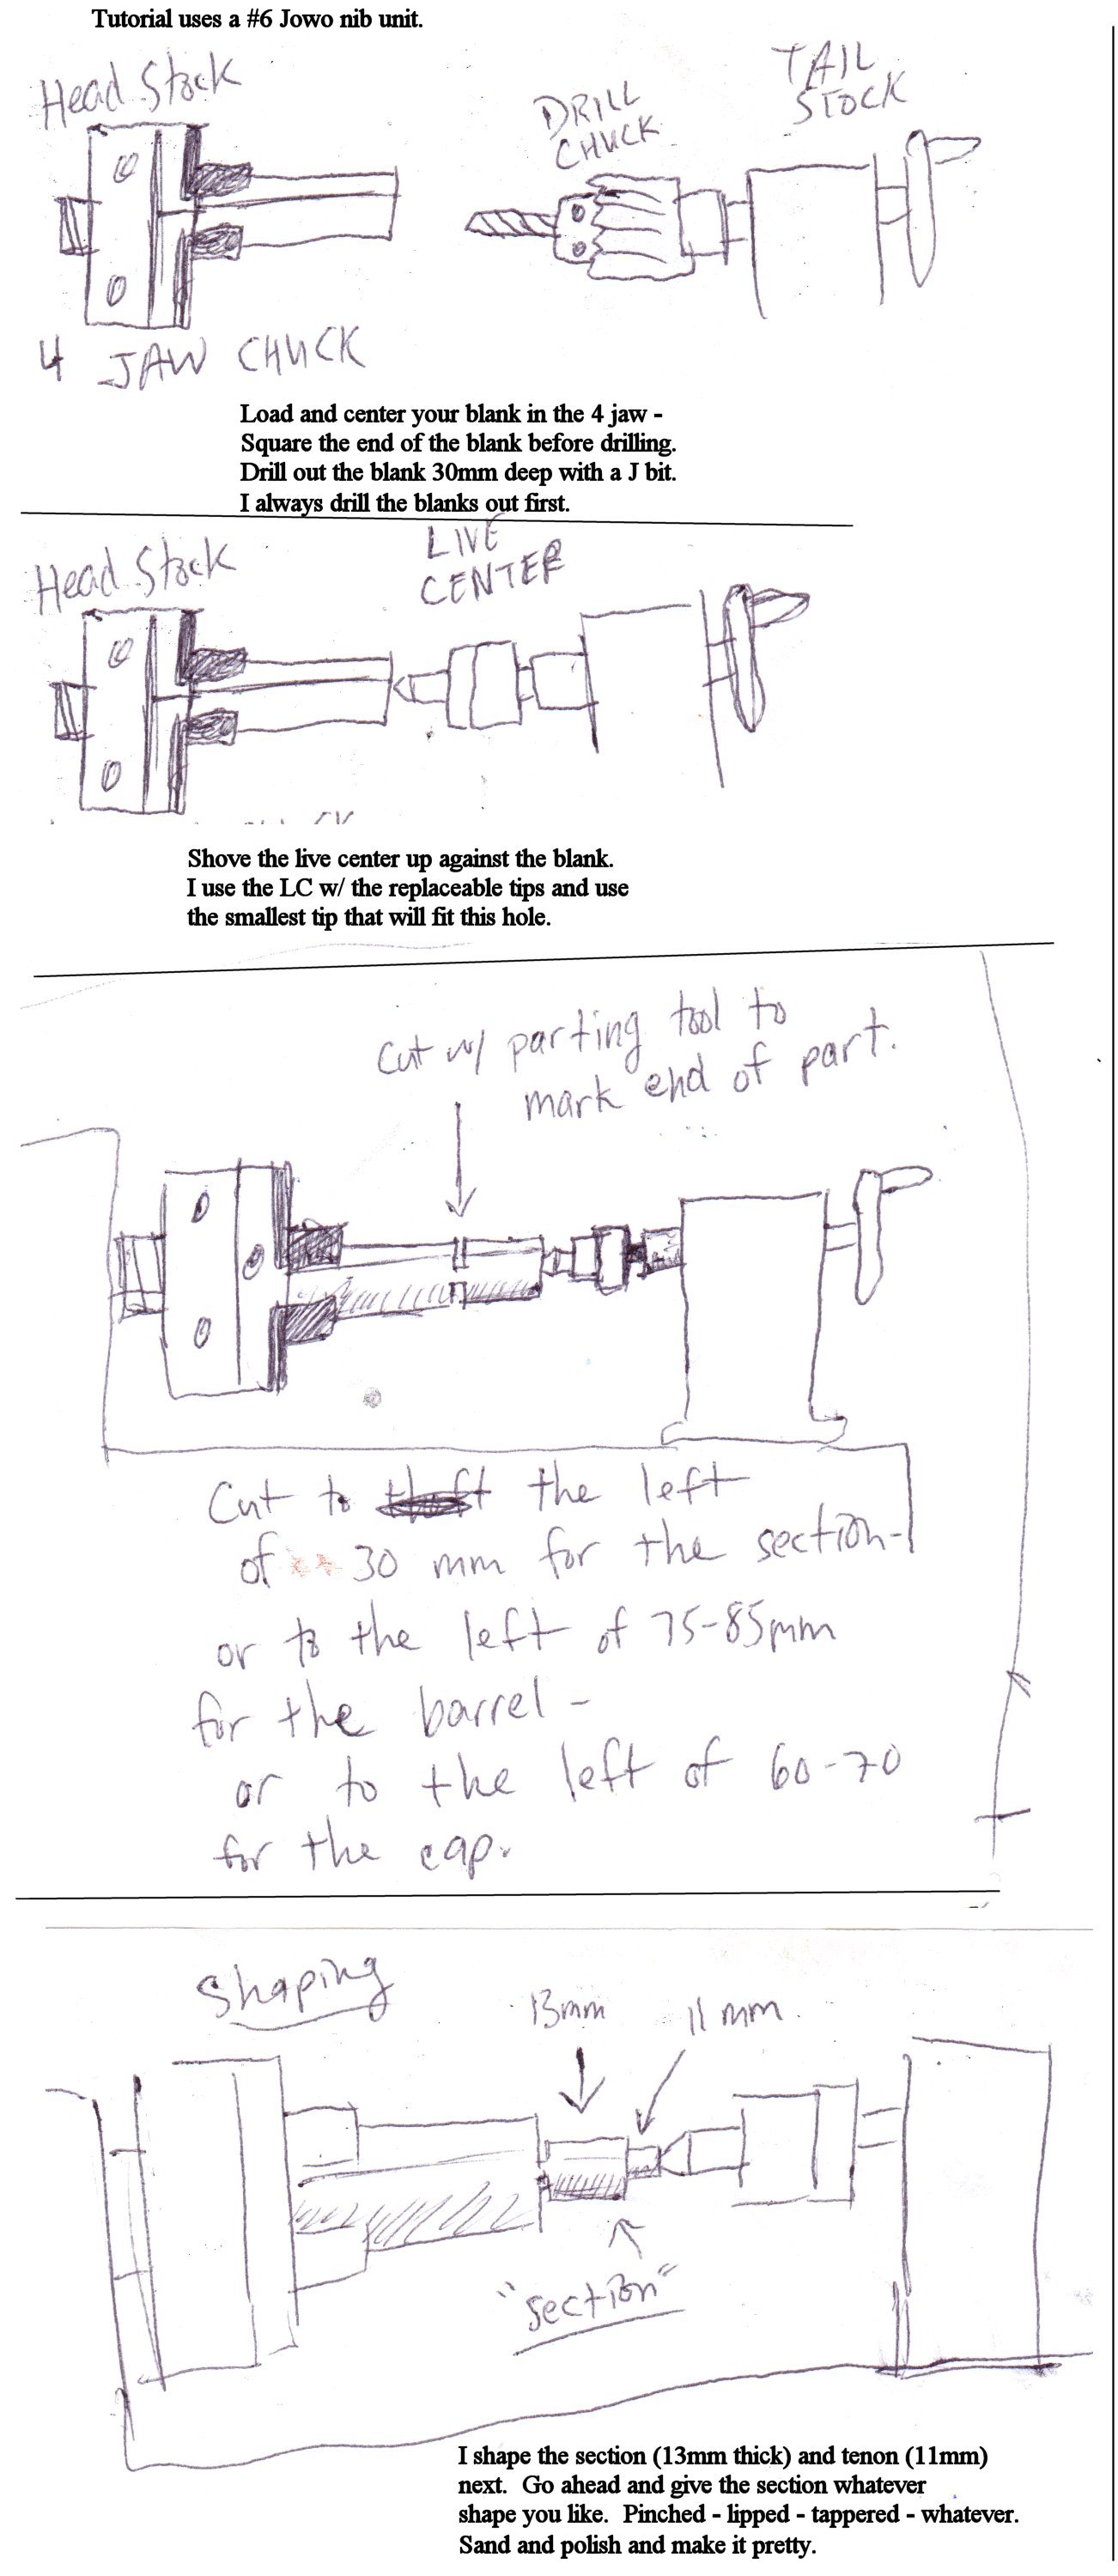 Tutorial uses a #6 Jowo nib unit.
Head Stock
TAIL
STOCK
DRILL
CHUCK
4 JAW CHUCK
Load and center your blank in the 4 jaw -
Square the end of the blank before drilling.
Drill out the blank 30mm deep with a J bit.
I always drill the blanks out first.
Head Stock
LIVE
CENTER
Shove the live center up against the blank.
I use the LC w/ the replaceable tips and use
the smallest tip that will fit this hole.
Cut w/ parting tool to
mark end of part.
Cut to the left
of 30 mm for the section-
or to the left of 75-85mm
for the barrel -
or to the left of 60-70
for the cap.
Shaping
13mm
11 mm
"section"
I shape the section (13mm thick) and tenon (11mm)
next. Go ahead and give the section whatever
shape you like. Pinched - lipped - tappered - whatever.
Sand and polish and make it pretty.